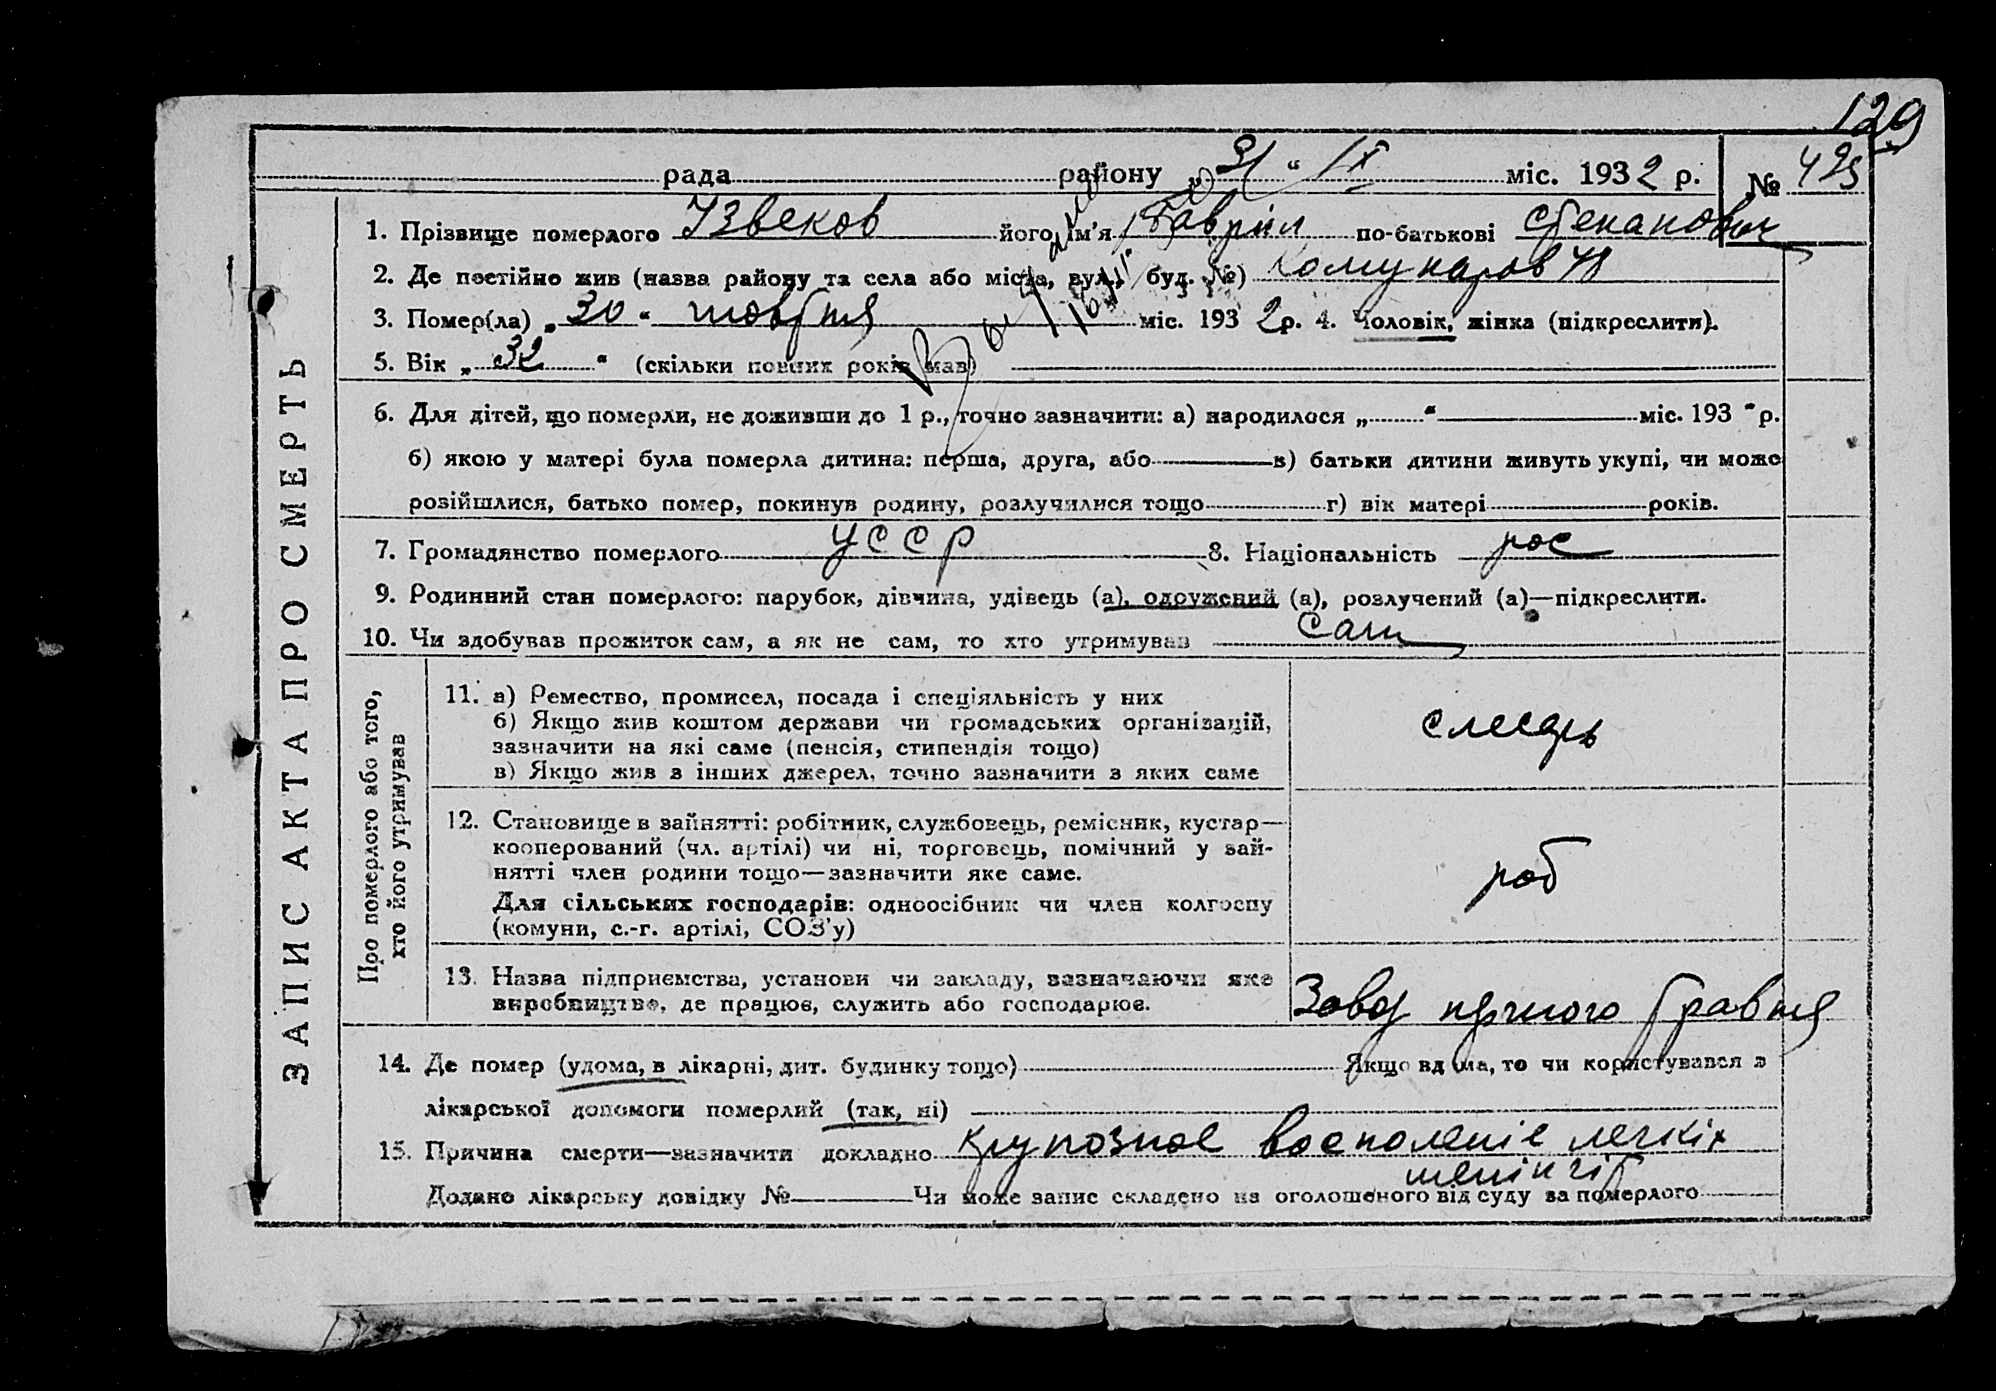 129
рада районуּ „31“ IX міс. 1932 р. № 425
1. Прізвище померлого Узвеков його ім'я Гавріил по-батькові Степанович
2. Де постійно жив (назва району та села або міста, вул., буд. №) Комунаров 48
3. Помер(ла) „30“ жовтня міс. 1932 р. 4. Чоловік, жінка (підкреслити).
5. Вік „32“ (скільки повних років мав)
6. Для дітей, що померли, не доживши до 1 р., точно зазначити: а) народилося „ “ міс. 193 р.
б) якою у матері була померла дитина: перша, друга, або в) батьки дитини живуть укупі, чи може
розійшлися, батько помер, покинув родину, розлучилися тощо г) вік матері років.
7. Громадянство померлого УССР 8. Національність рос
9. Родинний стан померлого: парубок, дівчина, удівець (а), одружений (а), розлучений (а)—підкреслити.
10. Чи здобував прожиток сам, а як не сам, то хто утримував сам
ЗАПИС АКТА ПРО СМЕРТЬ
Про померлого або того,
хто його утримував
11. а) Ремество, промисел, посада і спеціяльність у них
б) Якщо жив коштом держави чи громадських організацій,
зазначити на які саме (пенсія, стипендія тощо)
в) Якщо жив з інших джерел, точно зазначити з яких саме
слесарь
12. Становище в зайнятті: робітник, службовець, ремісник, кустар—
кооперований (чл. артілі) чи ні, торговець, помічний у зай-
нятті член родини тощо—зазначити яке саме.
Для сільських господарів: одноосібник чи член колгоспу
(комуни, с.-г. артілі, СОЗ'у)
роб
13. Назва підприємства, установи чи закладу, зазначаючи яке
виробництво, де працює, служить або господарює.
Завод
14. Де помер (удома, в лікарні, дит. будинку тощо) Якщо вдома, то чи користувався з
лікарської допомоги померлий (так, ні)
15. Причина смерти—зазначити докладно крупозное воспаленіе легкіх
менінгіт
Додано лікарську довідку № Чи може запис складено на оголошеного від суду за померлого